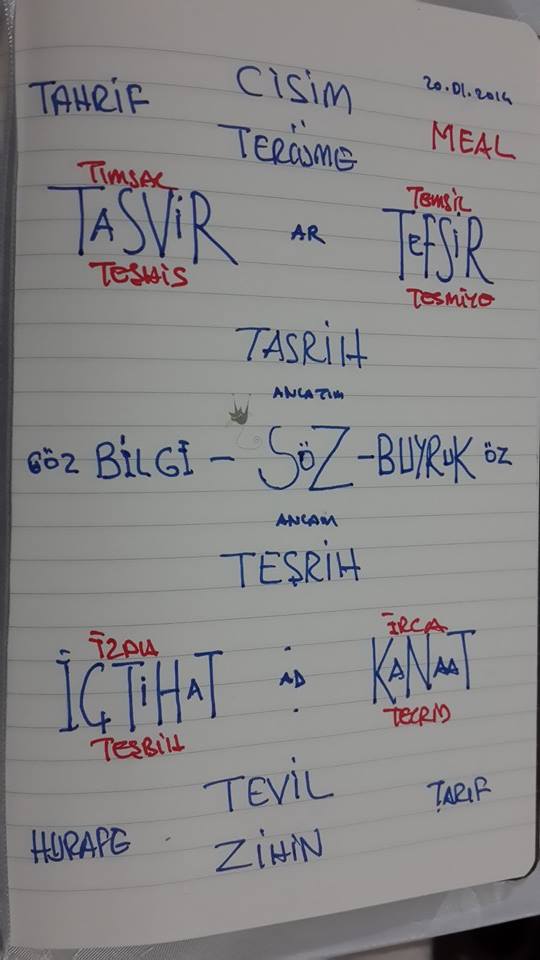 CİSİM 20.01.2014
TAHRİF
TERCÜME MEAL
TİMSAL TEMSİL
TASVİR AR TEFSİR
TEŞHİS TESMİYE
TASRİH
ANLATIM
GÖZ BİLGİ – SÖZ – BUYRUK ÖZ
ANLAM
TEŞRİH
İRCA
İÇTİHAT AD KANAAT
TEŞBİH TECRİD
TEVİL TARİF
HURAFE ZİHİN